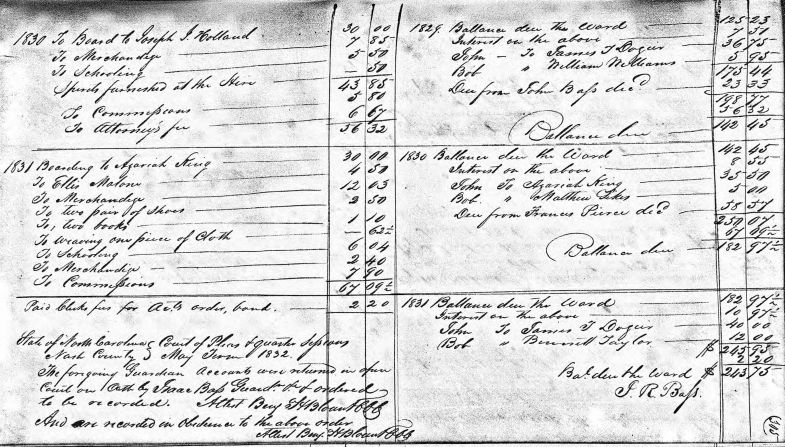 1830 To Board to Joseph J. Holland 30 00
To Merchandize 7 85
To Schooling 5 50
Spirits furnished at the Hire 50
43 85
To Commissions 5 80
To Attorney's fee 6 67
56 32
1831 Boarding to Azariah King 30 00
To Ellis Malone 4 50
To Merchandize 12 03
To two pair of Shoes 2 50
To, two books 1 10
To weaving one piece of Cloth 62½
To Schooling 6 04
To Merchandize 2 40
To Commissions 7 90
67 09½
Paid Clerks fees for Accts order, bond. 2 20
State of North Carolina Court of Pleas & quarter Sessions
Nash County May Term 1832.
The foregoing Guardian Accounts were returned in open
Court on Oath by Isaac Bass Guard & ordered
to be recorded. Attest Benj H Blount CCC
And are recorded in Obedience to the above order
Attest Benj. H Blount CCC
1829 Ballance due the Ward 125 23
Interest on the above 7 51
John - To James T Dozier 36 75
Bob " William Williams 5 95
175 44
Due from John Bass dec'd 23 33
198 77
56 32
Ballance due 142 45
1830 Ballance due the Ward 142 45
Interest on the above 8 55
John To Azariah King 35 50
Bob " Matthew Sikes 5 00
Due from Frances Pierce dec'd 58 57
250 07
67 09½
Ballance due 182 97½
1831 Ballance due the Ward 182 97½
Interest on the above 10 97½
John To James T Dozier 40 00
Bob " Taylor 12 00
$ 245 95
2 20
Bal. due the Ward $ 243 75
J. R. Bass.